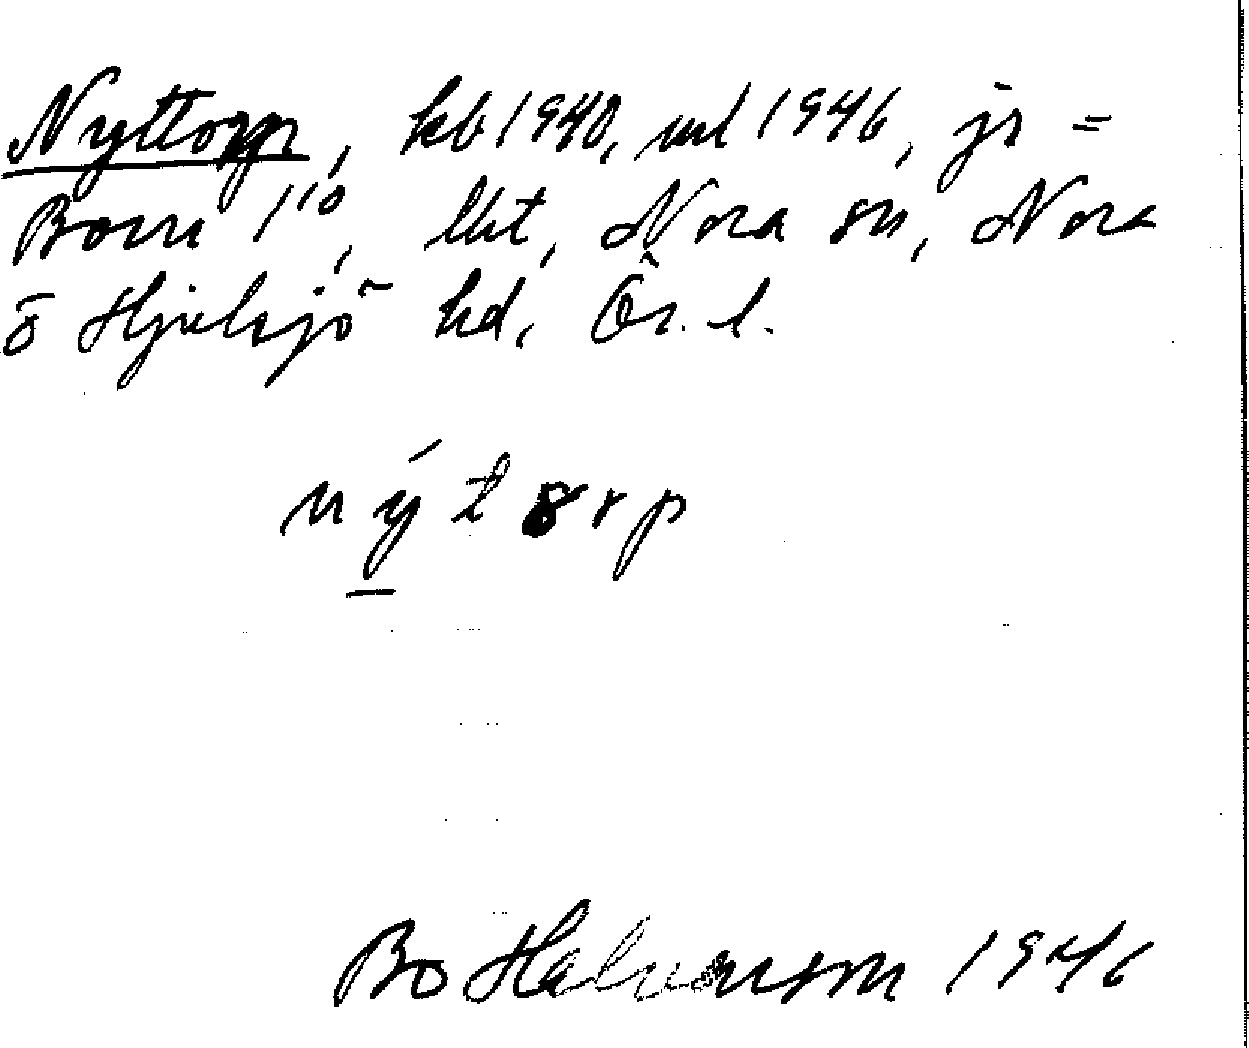 Nyttorp, kb 1940, ml 1946, jr =
Born 1¹⁰, lht, Nora sn, Nora
o Hjulsjö hd, Ör. l.
nýtorp
Bo Halvarson 1946